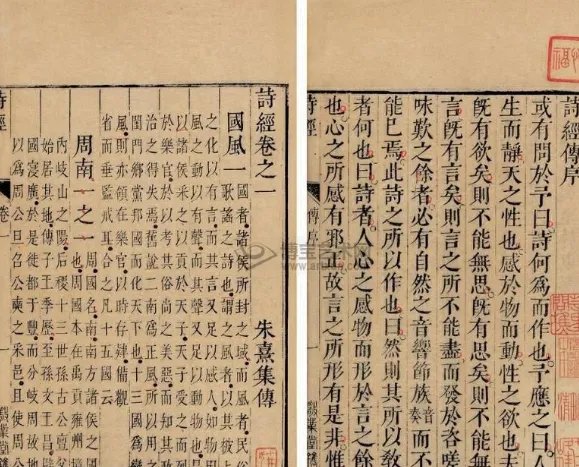 詩經傳序
或有問於予曰詩何為而作也予應之曰人
生而靜天之性也感於物而動性之欲也夫
既有欲矣則不能無思既有思矣則不能無
言既有言矣則言之所不能盡而發於咨嗟
味歎之餘者必有自然之音響節族音奏而不
能已焉此詩之所以作也曰然則其所以教
者何也曰詩者人心之感物而形於言之餘
也心之所感有邪正故言之所形有是非惟
詩經 傳序
詩經卷之一
朱熹集傳
國風一 國者諸侯所封之域而風者民俗
歌謠之詩也謂之風者以其被上
之化以有言而其言又足以感人如物因
風之動以有聲而其聲又足以動物也是
以諸侯采之以貢於天子天子受之而列
於樂官於以考其俗尚之美惡而知其政
治之得失焉舊說二南為正風所以用之
閨門鄉黨邦國而化天下也十三國為變
風則亦領在樂官以時存肄備觀
省而垂監戒耳合之凡十五國云
周南一之一 周國名南南方諸侯之國
也周國本在禹貢雍州境
內岐山之陽后稷十三世孫古公亶
始居其地傳子王季歷至孫文王昌辟
國寖廣於是徙都于豐而分岐周故
以為周公旦召公奭之采邑且使周公
詩經 卷一